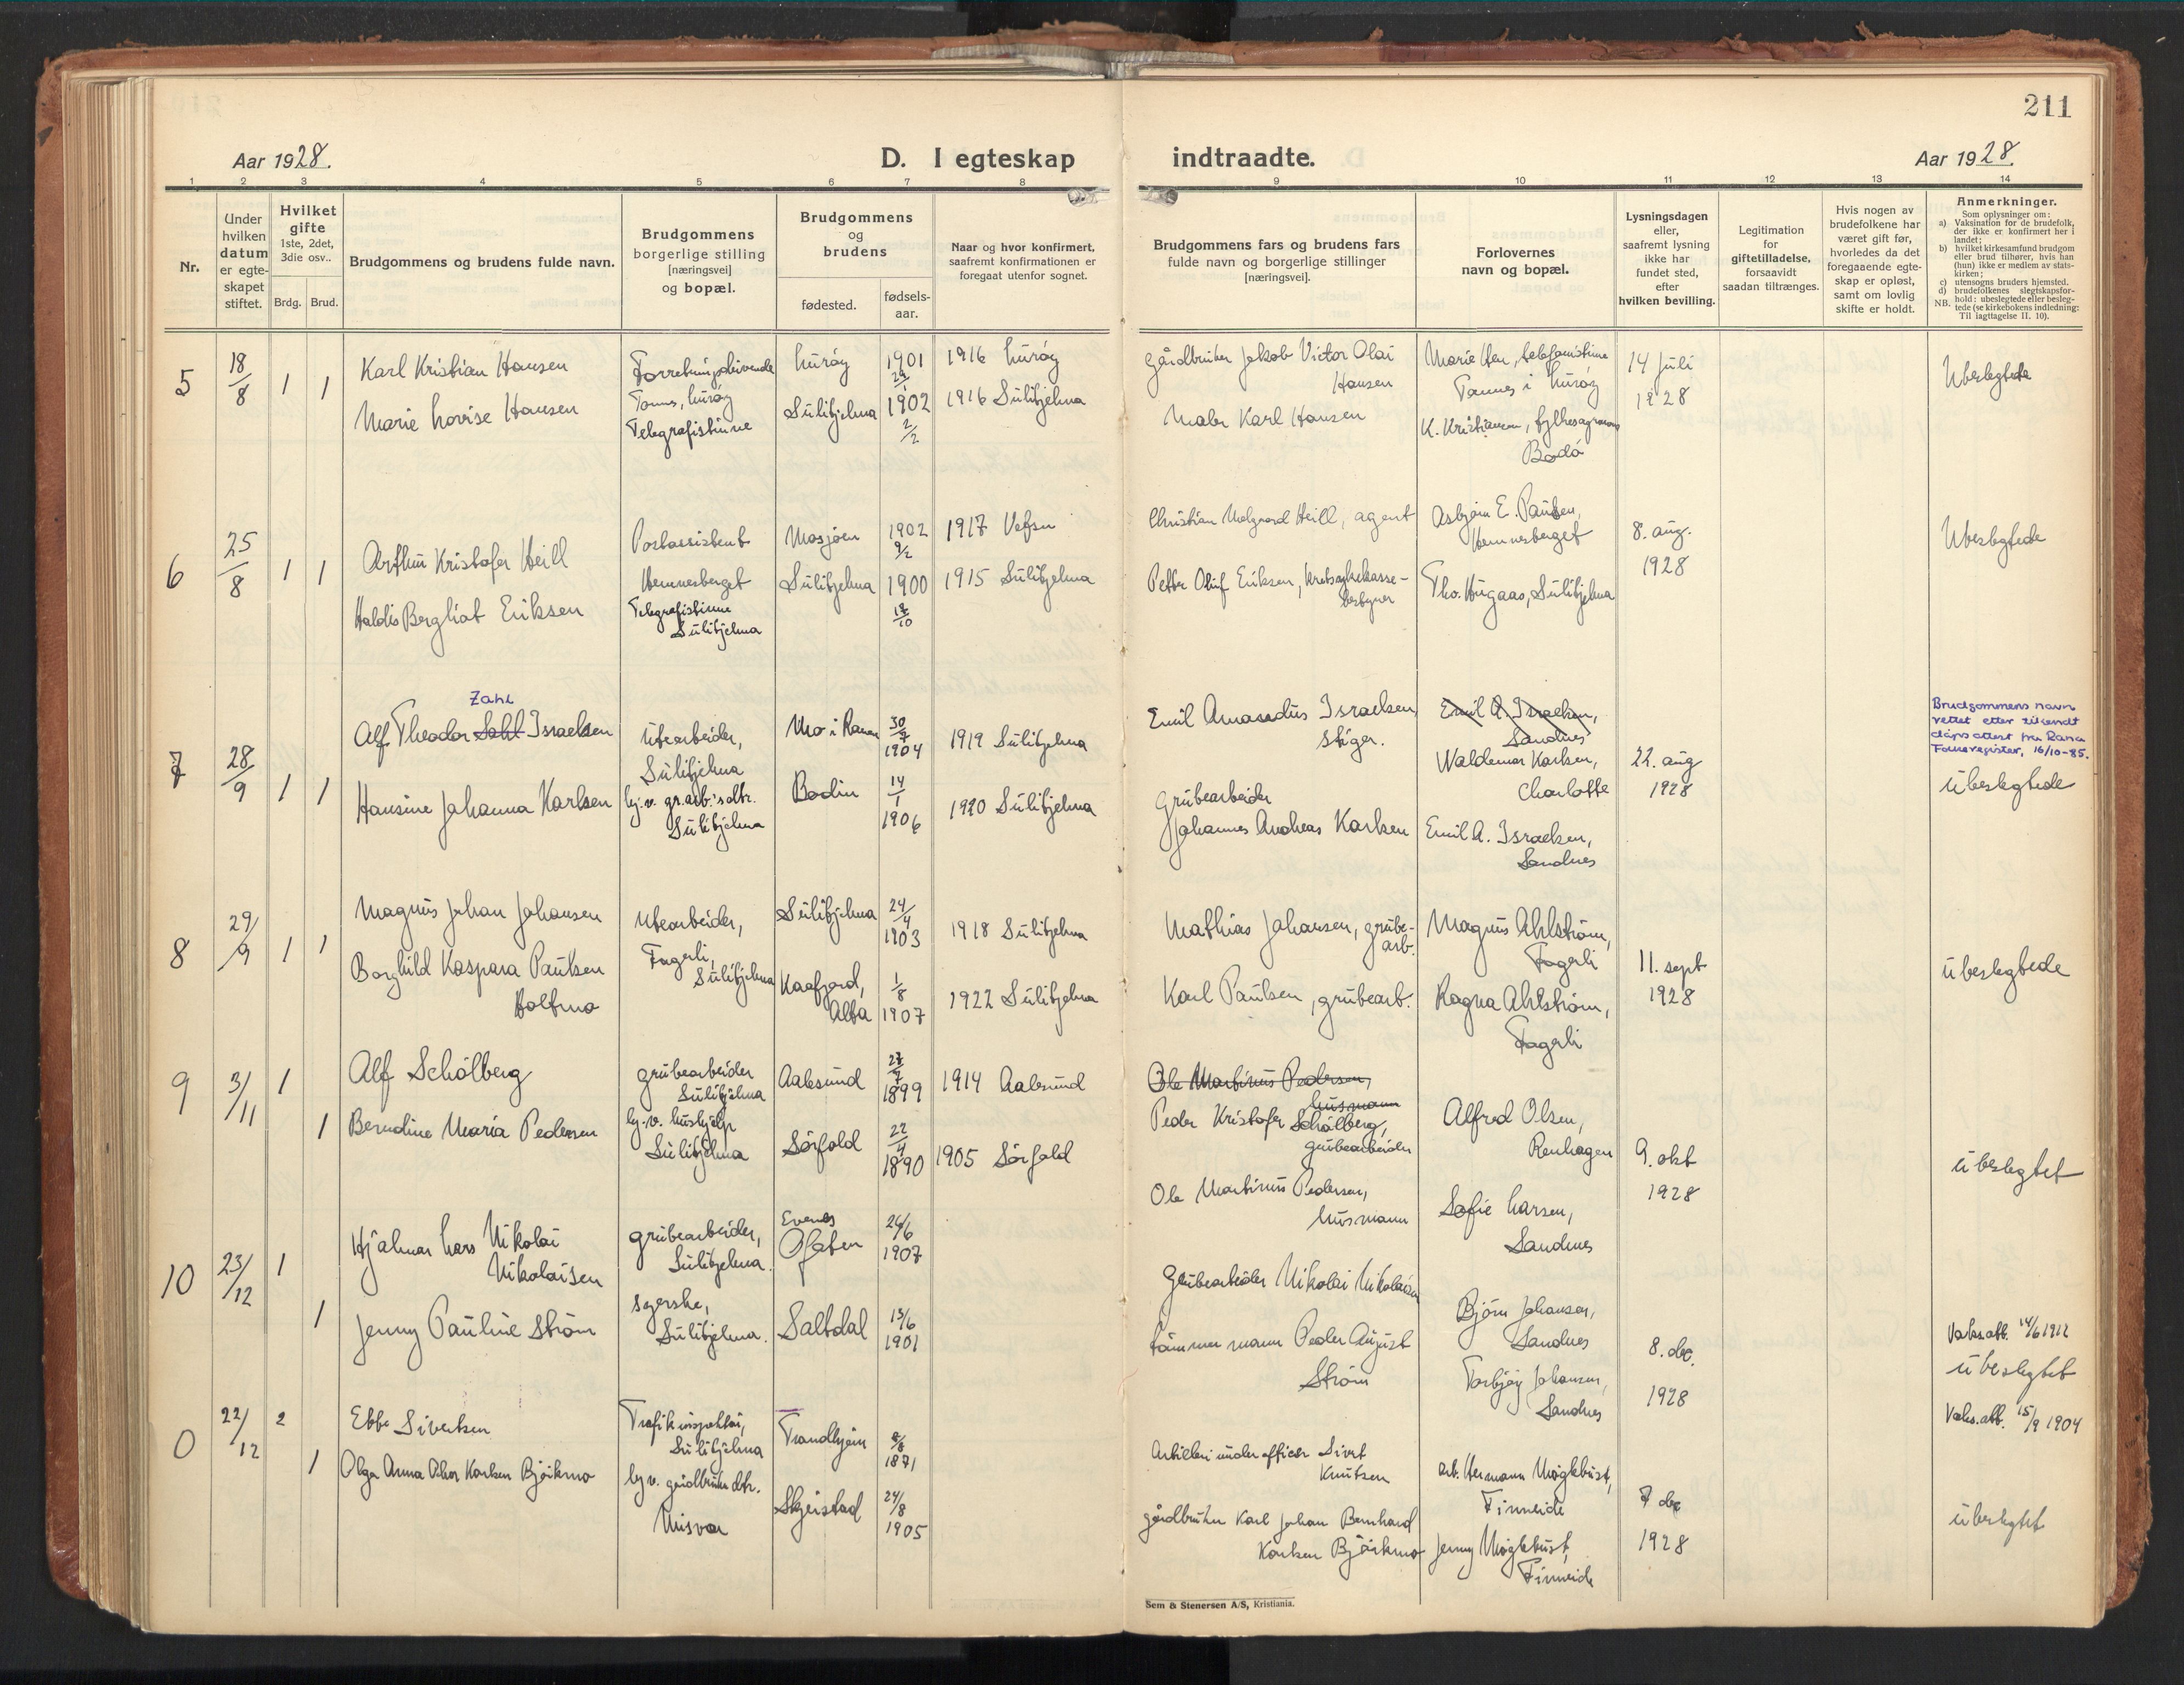 211
Aar 1928.
D. I egteskap
indtraadte.
Aar 1928.
1 2 3 4 5 6 7 8 9 10 11 12 13 14
Nr.
Under hvilken datum er egte-skapet stiftet.
Hvilket gifte
1ste, 2det, 3die osv..
Brdg. Brud.
Brudgommens og brudens fulde navn.
Brudgommens borgerlige stilling [næringsvei] og bopæl.
Brudgommens og brudens
fødested.
fødsels-aar.
Naar og hvor konfirmert, saafremt konfirmationen er foregaat utenfor sognet.
Brudgommens fars og brudens fars fulde navn og borgerlige stillinger [næringsvei].
Forlovernes navn og bopæl.
Lysningsdagen eller, saafremt lysning ikke har fundet sted, efter hvilken bevilling.
Legitimation for giftetilladelse, forsaavidt saadan tiltrænges.
Hvis nogen av brudefolkene har været gift før, hvorledes da det foregaaende egte-skap er opløst, samt om lovlig skifte er holdt.
Anmerkninger.
Som oplysninger om:
a) Vaksination for de brudefolk, der ikke er konfirmert her i landet;
b) hvilket kirkesamfund brudgom eller brud tilhører, hvis han (hun) ikke er medlem av stats-kirken;
c) utensogns bruders hjemsted.
d) brudefolkenes slegtskapsfor-hold: ubeslegtede eller besleg-tede (se kirkebokens indledning: Til iagttagelse II. 10).
NB.
5 18/8 1 1
Karl Kristian Hansen
Marie Lovise Hansen
Forretningsdrivende
Tonnes, Lurøy
Telegrafistinne
Lurøy 1901 1916 Lurøy
Sulitjelma 1902 2/2 1916 Sulitjelma
gårdbruker Jakob Victor Olai
Hansen
Maler Karl Hansen
Tonnes i Lurøy
Bodø
14 juli
1928
Ubeslegtede
6 25/8 1 1
Arthur Kristofer Heill
Haldis Bergliot Eriksen
Postassistent
Hemnesberget
Telegrafistinne
Sulitjelma
Mosjøen 1902 9/2 1917 Vefsn
Sulitjelma 1900 1915 Sulitjelma
Heill, agent
Petter Oluf Eriksen, kretssykekasse-
bestyrer
Asbjørn E. Paulsen,
Hemnesberget
Tho. Hugaas, Sulitjelma
8. aug.
1928
Ubeslegtede
7 28/9 1 1
Zahl
Alf Theodor Sahl Israelsen
Hansine Johanna Karlsen
Utearbeider,
Sulitjelma
hj.v. gr.arb.'s dtr.
Sulitjelma
Mo i Ranen 30/7 1904 1919 Sulitjelma
Bodin 14/1 1906 1920 Sulitjelma
Emil Amandus Israelsen,
stiger.
Grubearbeider
Johannes Andreas Karlsen
Emil A. Israelsen,
Sandnes
Waldemar Karlsen,
Charlotta
Emil A. Israelsen,
Sandnes
22. aug
1928
Brudgommens navn
rettet etter tilsendt
dåpsattest fra Rana
Folkeregister, 16/10-85.
ubeslegtede
8 29/9 1 1
Magnus Johan Johansen
Borghild Kaspara Paulsen
Holtmo
Utearbeider,
Fagerli,
Sulitjelma
Sulitjelma 24/4 1903 1918 Sulitjelma
Kaafjord,
Alta 1/8 1907 1922 Sulitjelma
Mathias Johansen, grube-
arb.
Karl Paulsen, grubearb.
Magnus Ahlstrøm,
Fagerli
Ragna Ahlstrøm,
Fagerli
11. sept
1928
ubeslegtede
9 3/11 1 1
Alf Schølberg
Berndine Maria Pedersen
grubearbeider
Sulitjelma
hj.v. hushjelp
Sulitjelma
Aalesund 27/7 1899 1914 Aalesund
Sørfold 22/4 1890 1905 Sørfold
Ole Martinus Pedersen,
husmann
Peder Kristofer Schølberg,
grubearbeider
Ole Martinus Pedersen,
husmann
Alfred Olsen,
Renhagen
Sofie Larsen,
Sandnes
9. okt
1928
ubeslegtet
10 23/12 1 1
Hjalmar Lars Nikolai
Nikolaisen
Jenny Pauline Strøm
grubearbeider,
Sulitjelma.
syerske,
Sulitjelma.
Evenes
Ofoten 24/6 1907
Saltdal 15/6 1901
Grubearbeider Nikolai Nikolaisen
tømmermann Peder August
Strøm
Bjørn Johansen,
Sandnes
Torbjørg Johansen,
Sandnes
8. dec.
1928
Vaks.att. 14/6 1912
ubeslegtet
Vaks.att. 15/9 1904
0 22/12 2 1
Ebbe Sivertsen
Olga Anna Karlsen Bjørkmo
Trafikinspektør,
Sulitjelma
hj v. gårdbruker dtr.
Misvær
Trondhjem 1871
Skjerstad 24/8 1905
Artilleri underofficer Sivert
Knutsen
gårdbruker Karl Johan Bernhard
Karlsen Bjørkmo
arb. Hermann Møglebust,
Finneide
Jenny Møglebust,
Finneide
7 dec
1928
ubeslegtet
Sem & Stenersen A/S, Kristiania.